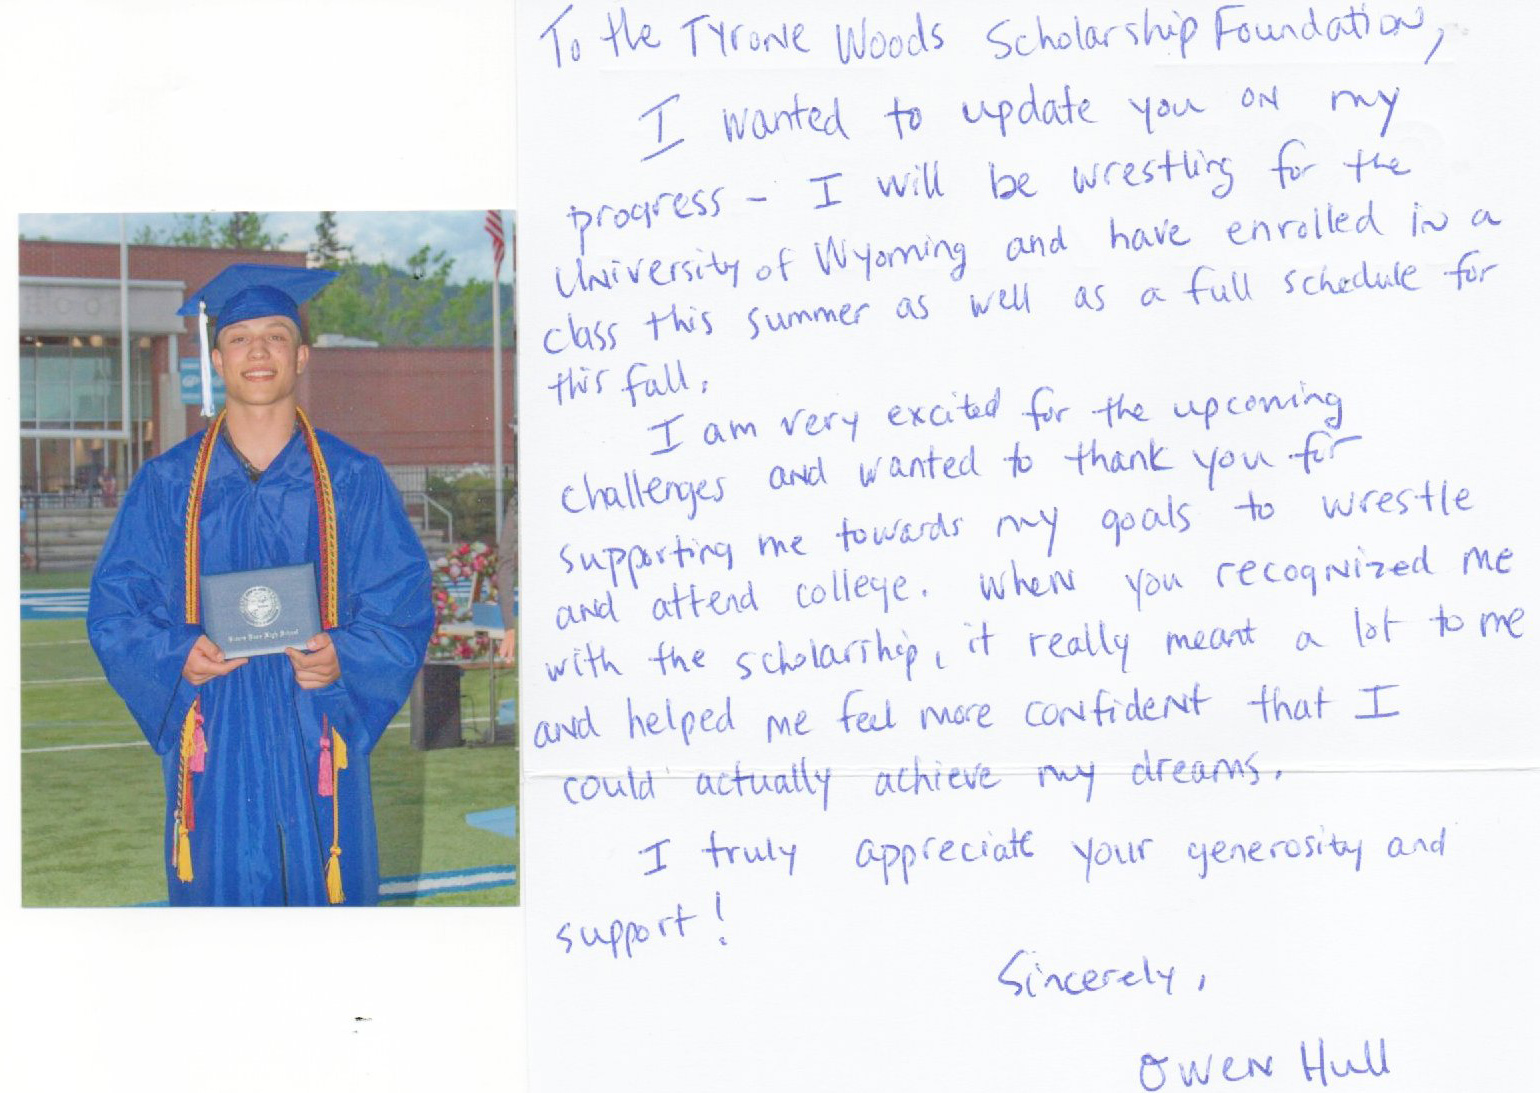 To the Tyrone Woods Scholarship Foundation,
I wanted to update you on my
progress - I will be wrestling for the
University of Wyoming and have enrolled in a
class this summer as well as a full schedule for
this fall.
I am very excited for the upcoming
challenges and wanted to thank you for
supporting me towards my goals to wrestle
and attend college. When you recognized me
with the scholarship, it really meant a lot to me
and helped me feel more confident that I
could actually achieve my dreams.
I truly appreciate your generosity and
support!
Sincerely,
Owen Hull
HOOL
High School